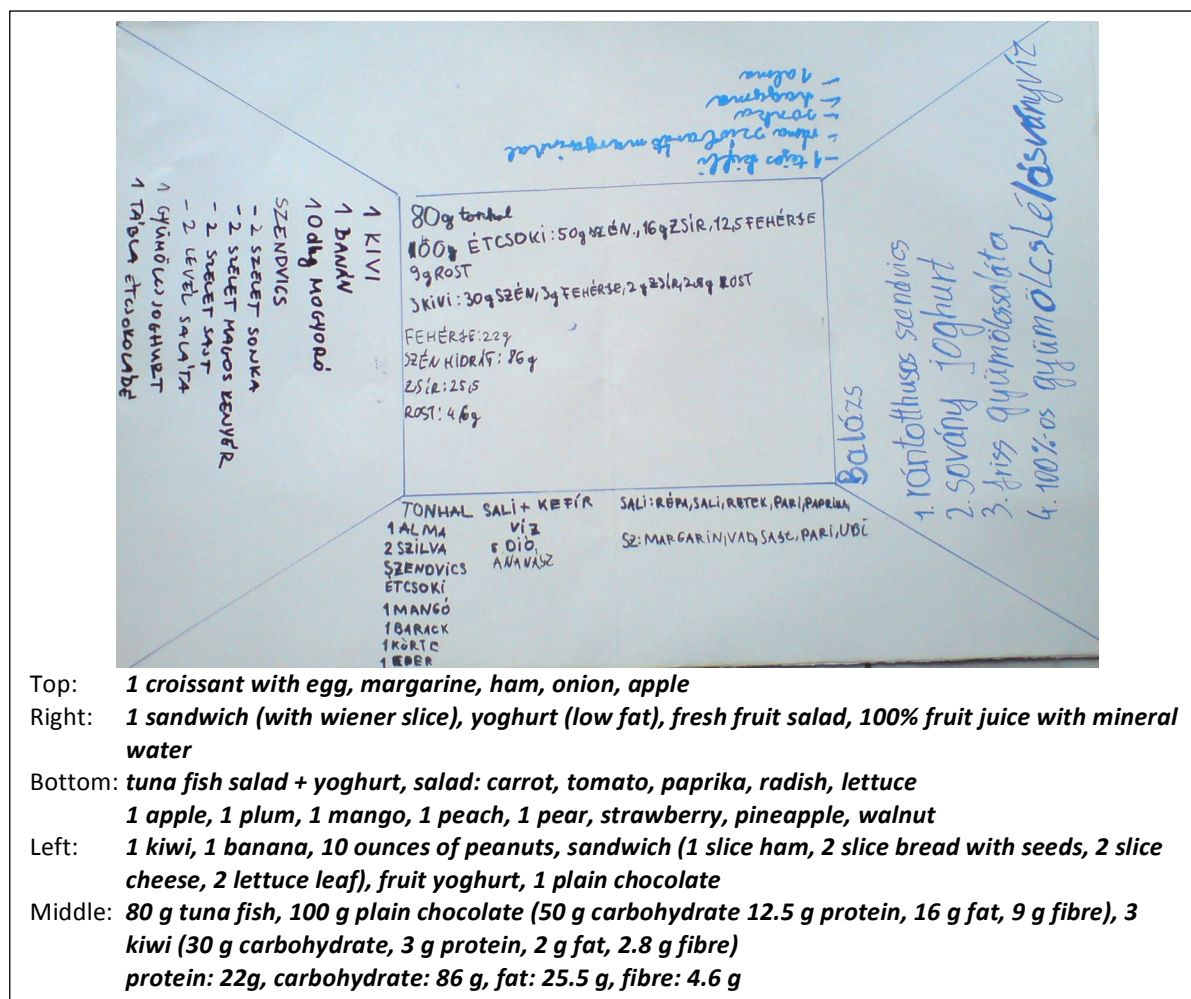 - 1 tejes kifli
- ráma szívbarát margarinnal
- sonka
- hagyma
- 1 alma
1 KIVI
1 BANÁN
10 dkg MOGYORÓ
SZENDVICS
- 2 SZELET SONKA
- 2 SZELET MAGOS KENYÉR
- 2 SZELET SAJT
- 2 LEVÉL SALÁTA
1 GYÜMÖLCSJOGHURT
1 TÁBLA ÉTCSOKOLÁDÉ
80g tonhal
100g ÉTCSOKI: 50g SZÉN., 16g ZSÍR, 12,5 FEHÉRJE
9g ROST
3 KIVI: 30g SZÉN, 3g FEHÉRJE, 2g ZSÍR, 2,8g ROST
FEHÉRJE: 22g
SZÉNHIDRÁT: 86g
ZSÍR: 25,5
ROST: 4,6g
Balázs
1. rántotthusos szendvics
2. sovány joghurt
3. friss gyümölcssaláta
4. 100%-os gyümölcslé ásványvíz
TONHAL SALI + KEFÍR
1 ALMA VÍZ
2 SZILVA DIÓ
SZENDVICS ANANÁSZ
ÉTCSOKI
1 MANGÓ
1 BARACK
1 KÖRTE
1 EPER
SALI: RÉPA, SALI, RETEK, PARI, PAPRIKA,
SZ: MARGARIN, VAD, SAJT, PARI, UBI
Top: 1 croissant with egg, margarine, ham, onion, apple
Right: 1 sandwich (with wiener slice), yoghurt (low fat), fresh fruit salad, 100% fruit juice with mineral
water
Bottom: tuna fish salad + yoghurt, salad: carrot, tomato, paprika, radish, lettuce
1 apple, 1 plum, 1 mango, 1 peach, 1 pear, strawberry, pineapple, walnut
Left: 1 kiwi, 1 banana, 10 ounces of peanuts, sandwich (1 slice ham, 2 slice bread with seeds, 2 slice
cheese, 2 lettuce leaf), fruit yoghurt, 1 plain chocolate
Middle: 80 g tuna fish, 100 g plain chocolate (50 g carbohydrate 12.5 g protein, 16 g fat, 9 g fibre), 3
kiwi (30 g carbohydrate, 3 g protein, 2 g fat, 2.8 g fibre)
protein: 22g, carbohydrate: 86 g, fat: 25.5 g, fibre: 4.6 g